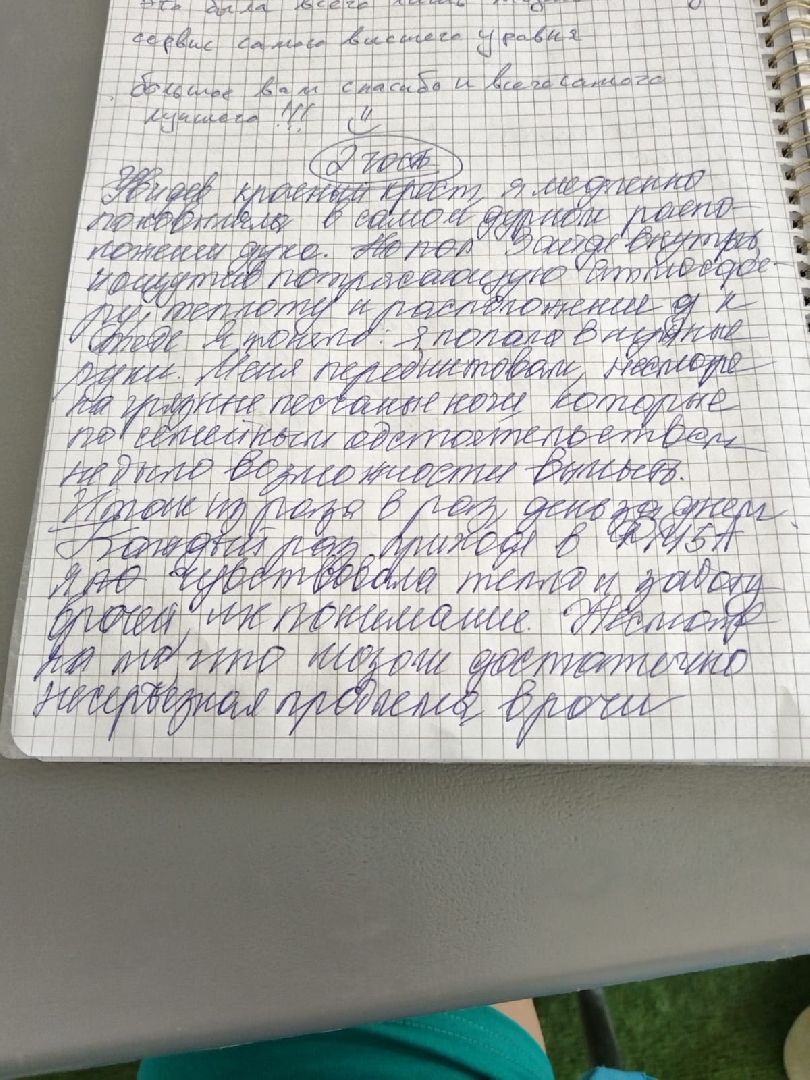 это была всего лишь
сервис самого высшего уровня
большое вам спасибо и всего самого
лучшего!!!
2 часть
Увидев красный крест, я медленно
поковыляла в самом дурном распо-
ложении духа. Но
зайдя внутрь,
ощутив потрясающую атмосфе-
ру, теплоту и расположение
к
себе я поняла: я попала в нужные
руки. Меня перебинтовали, несмотря
на грязные песчаные ноги которые
по семейным обстоятельствам
не было возможности вымыть.
И так из раза в раз, день за днем.
Каждый раз приходя в
я чувствовала тепло и заботу
врачей, их понимание. Несмотря
на то что мозоли достаточно
несерьезная проблема, врачи